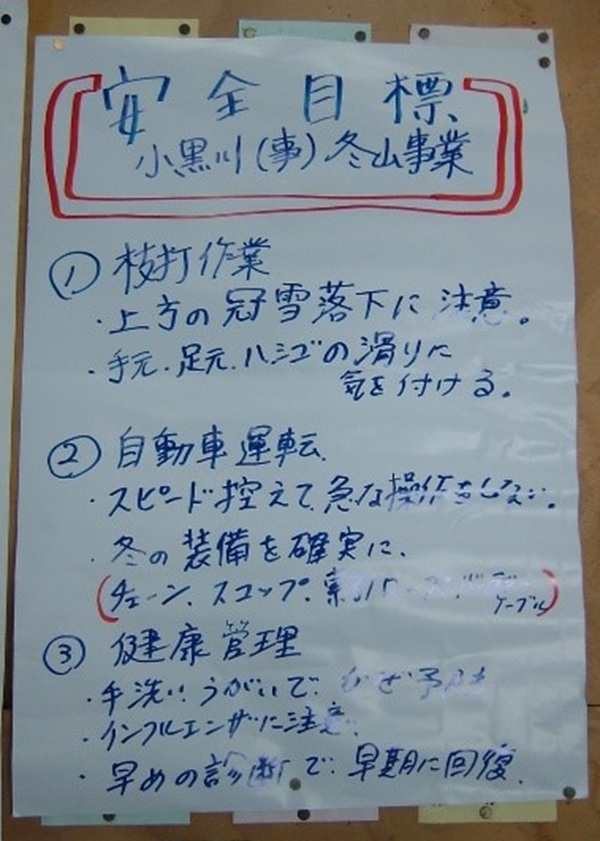 安全目標
小黒川(事)冬山事業
① 枝打作業
・上方の冠雪落下に注意。
・手元、足元、ハシゴの滑りに
気を付ける。
② 自動車運転
・スピード控えて、急な操作をしない。
・冬の装備を確実に、
(チェーン、スコップ、
ケーブル)
③ 健康管理
・手洗い、うがいで、かぜ予防
・インフルエンザに注意
・早めの診断で、早期に回復